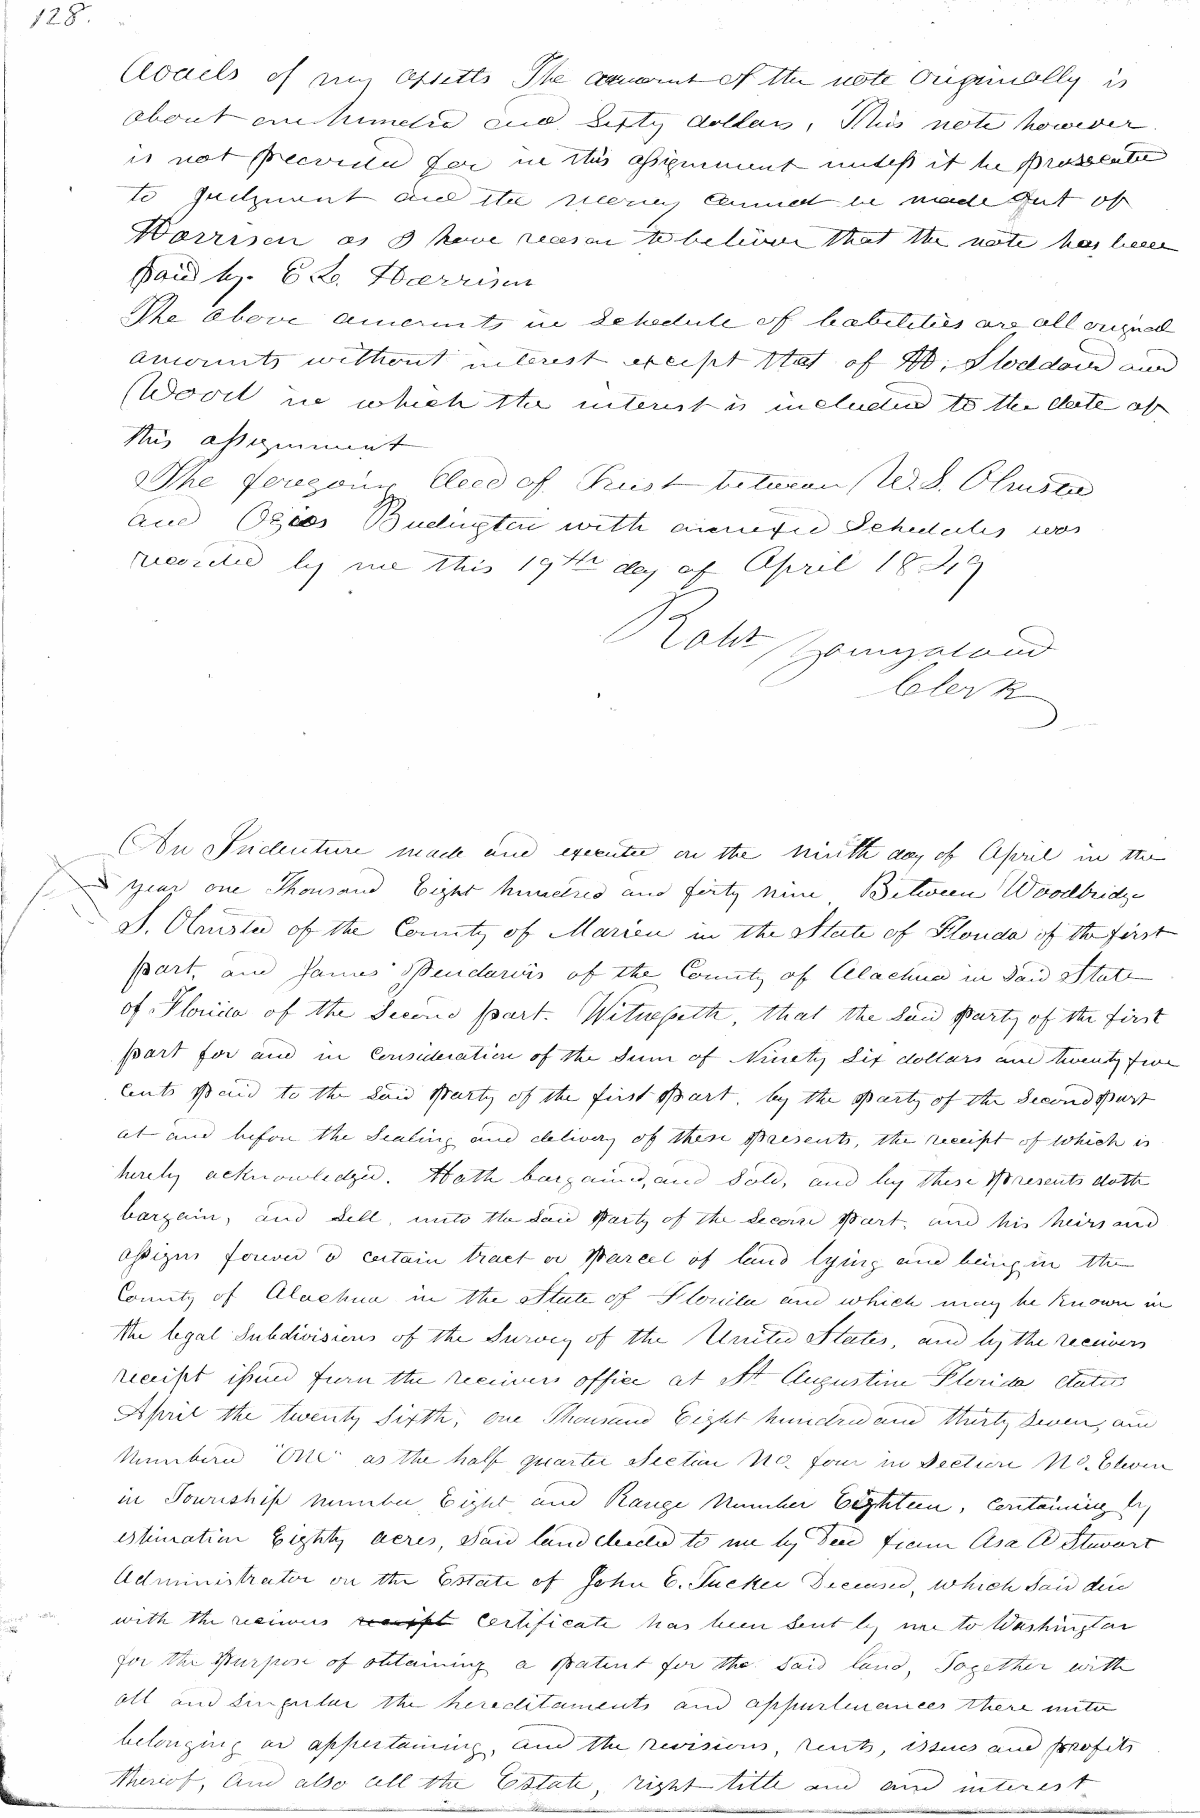 128.
Avails of my assetts The amount of the note originally is
about one hundred and Sixty dollars, This note however
is not provided for in this assignment unless it be prosecuted
to Judgment and the money cannot be made out of
Harrison as I have reason to believe that the note has been
paid by E. L. Harrison
The above amounts in Schedule of liabilities are all original
amounts without interest except that of H. Stoddard and
Wood in which the interest is included to the date of
this assignment
The foregoing deed of Trust between W. S. Olmsted
and Ogias Budington with annexed Schedules was
recorded by me this 19th day of April 1849
Robt
Clerk
An Indenture made and executed on the ninth day of April in the
year one Thousand Eight hundred and forty nine Between Woodbridge
S. Olmsted of the County of Marion in the State of Florida of the first
part, and James Pendarvis of the County of Alachua in said State
of Florida of the Second part. Witnesseth, that the said Party of the first
part for and in consideration of the Sum of Ninety Six dollars and twenty five
cents paid to the said Party of the first Part, by the Party of the Second Part
at and before the Sealing and delivery of these Presents, the receipt of which is
hereby acknowledged. Hath bargained, and Sold, and by these Presents doth
bargain, and Sell, unto the said Party of the Second Part, and his heirs and
assigns forever a certain tract or Parcel of land lying and being in the
County of Alachua in the State of Florida and which may be Known in
the legal Subdivisions of the Survey of the United States, and by the receivers
receipt issued from the receivers office at St Augustine Florida dated
April the twenty Sixth, one Thousand Eight hundred and thirty Seven, and
Numbered "One" as the half quarter Section No. four in Section No. Eleven
in Township number Eight and Range Number Eighteen, containing by
estimation Eighty acres, said land deeded to me by Deed from Asa A Stewart
Administrator on the Estate of John E. Tucker Deceased, which said deed
with the receivers receipt certificate has been sent by me to Washington
for the Purpose of obtaining a patent for the said land, Together with
all and Singular the hereditaments and appurtenances there unto
belonging or appertaining, and the revisions, rents, issues and profits
thereof, And also all the Estate, right title and and interest